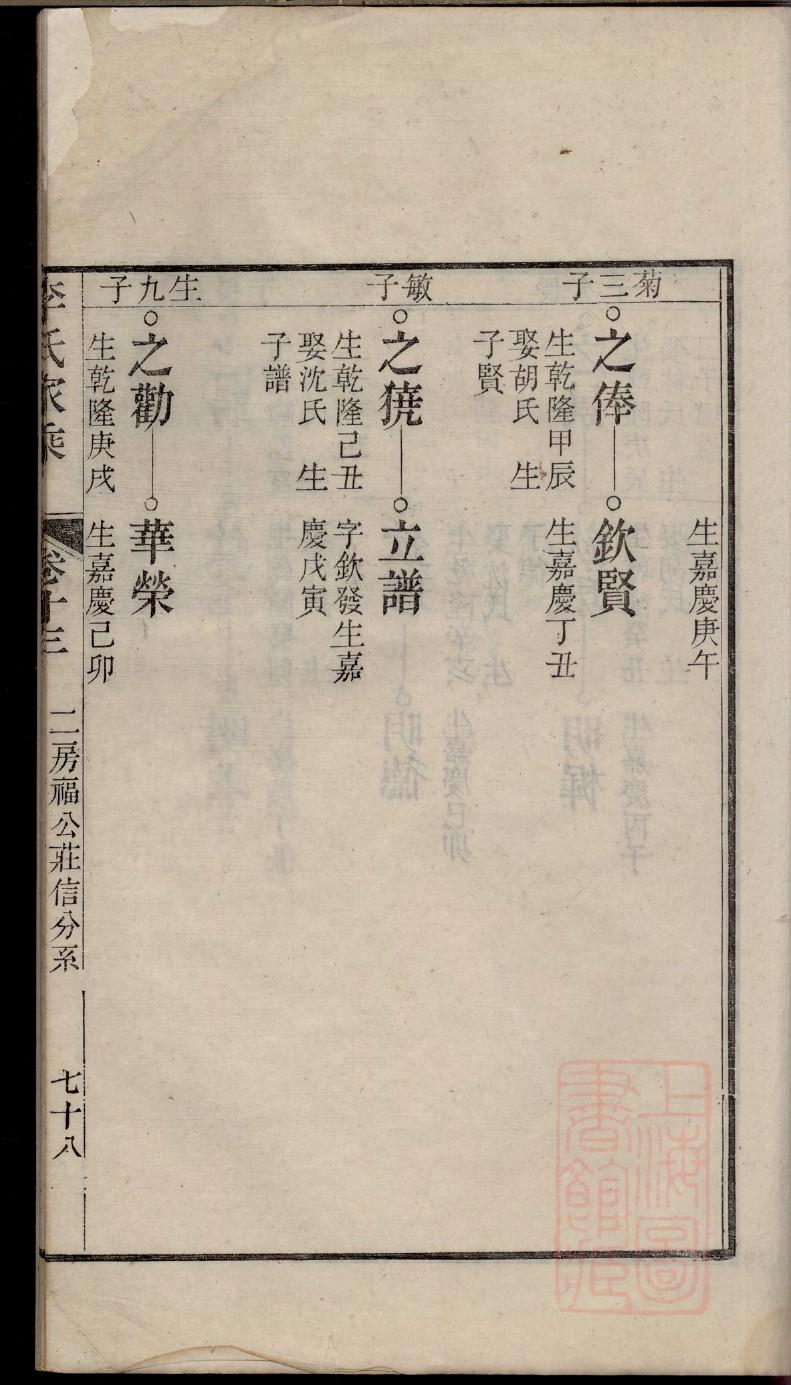 生嘉慶庚午
菊三子
之俸
生乾隆甲辰
娶胡氏 生
子賢
欽賢
生嘉慶丁丑
敏子
之獟
生乾隆己丑
娶沈氏 生
子譜
立譜
字欽發生嘉
慶戊寅
生九子
之勸
生乾隆庚戌
華榮
生嘉慶己卯
李氏家乘
卷十三
二房福公莊信分系
七十八
上海圖
書館藏